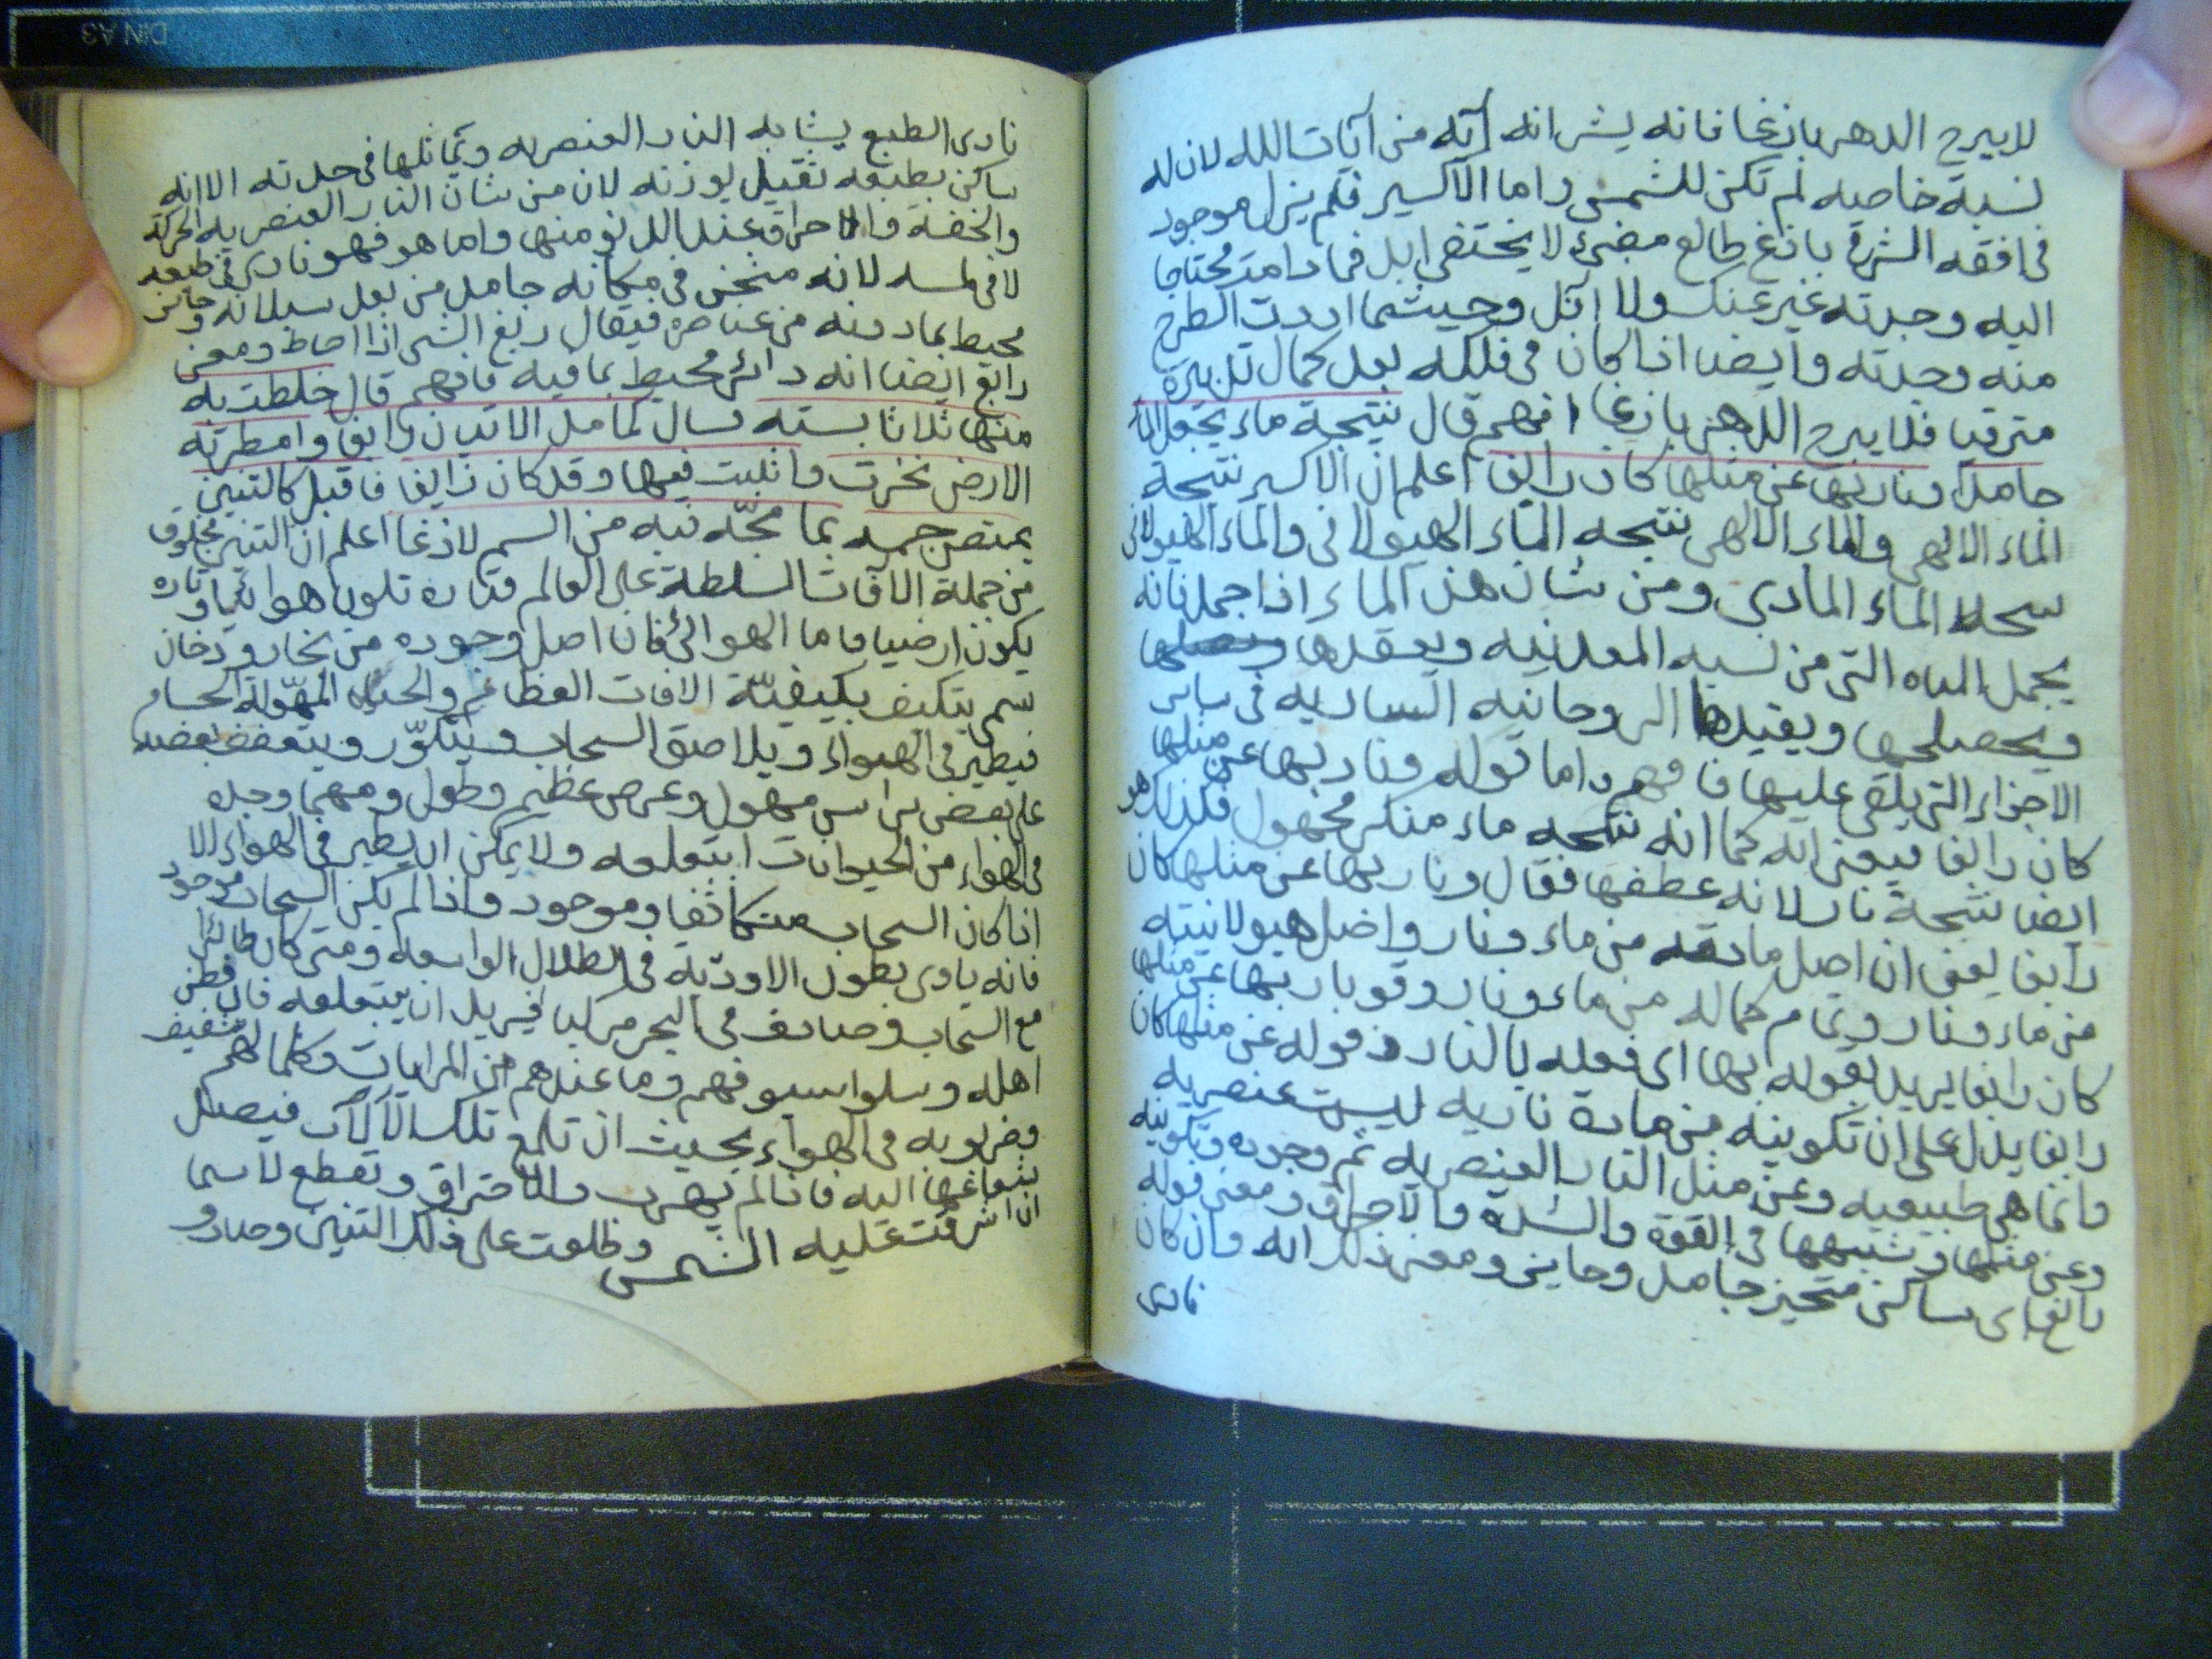 لا يبرح الدهر بازغا فانه يشر انه آية من آيات الله لان له
نسبة خاصيه لم تكن للشمس واما الاكسير فلم يزل موجود
فى افقه الشرق بازغ طالع مضئ لا يختفى ابدا فما دامت محتاجا
اليه وجدته غير عنك ولا آفل وحيثما اردت الطرح
منه وجدته وايضا اذا كان فى فلكه بعد كمال تدبيره
مترقيا فلا يبرح الدهر بازغا افهم قال نتيجة ماء يجعل الماء
جامدا ونار بها عن مثلها كان رابغا اعلم ان الاكسير نتيجة
الماء الالهى والماء الالهى نتيجه الماء الهيولانى والماء الهيولانى
الماء المادى ومن شان هذا الماء اذا جمد فانه
يجمد المياه التى من نسبه المعدنيه ويعقدها
ويقيدها الروحانيه الساريه فى ساير
الاجزاء التى يلقى عليها فافهم واما قوله ونار بها عن مثلها
كان رابغا فيعنى انه كما انه نتيجه ماء منكر مجهول فكذلك هو
ايضا نتيجة نار لانه عطفها فقال ونار بها عن مثلها كان
رابغا يعنى ان اصل مادته من ماء ونار واصل هيولانيته
من ماء ونار وتمام كماله من ماء ونار وقوله بها عن مثلها
كان رابغا يريد بقوله بها اى فعله بالنار وقوله عن مثلها كان
رابغا يدل على ان تكوينه من مادة ناريه ليست عنصريه
وانما هى طبيعيه وعن مثل النار العنصريه تم وجوده وتكوينه
وعن مثلها وشبهها فى القوة والشدة والاحراق ومعنى قوله
رابغ اى ساكن متحيز جامد وحايز ومعنى ذلك انه وان كان
نارى
نارى الطبع يشابه النار العنصريه ويماثلها فى حدته الا انه
ساكن بطبعه ثقيل بوزنه لان من شان النار العنصريه الحركة
والخفة والاحراق عند الدنو منها واما هو فهو نارى فى طبعه
لا فى لمسه لانه متحيز فى مكانه جامد من بعد سيلانه وحايز
محيط بما دونه من عناصره فيقال ربغ الشى اذا احاط ومعنى
رابغ ايضا انه دائر محيط بما فيه فافهم قال خلطت به
منها ثلاثا بسته فسال كما مد الاتيان رابغا وامطرته
الارض نخرت وانلبت فيها وقد كان زايغا فاقبل كالتنين
يمتص جسمه بما مجّه فيه من السم لاذعا اعلم ان التنين مخلوق
من جملة الافات السلطة على العالم فتاره تكون هوائيا وتاره
يكون ارضيا فاما الهوائى فان اصل وجوده من بخار ودخان
سمى يتكيف بكيفيّة الافات العظائم والحيات المهولة الجسام
فيطير فى الهواء ويلاصق السحاب ويتكوّر وينعطف بعضه
على بعض براس مهول وعرض عظيم وطول ومهما وجده
فى الهواء من الحيوانات ابتعلعه ولا يمكن ان يطير فى الهواء الا
اذا كان السحاب متكاثفا وموجود واذا لم يكن السحاب موجود
فانه ياوى بطون الاوديه فى الطلال الواسعه ومتى كان طائرا
مع السحاب وصادف فى البحر مركبا فيريد ان يبتعلعه فان فطن
اهله وسلوا سيوفهم وما عندهم من المرايات وكلما لهم تثقيف
وضربوا به فى الهواء بحيث ان تلمع تلك الآلات فيصل
شعاعها اليه فانه لم يهرب والا احترق وتقطع لا سيما
ان اشرقت عليه الشمس وطلعت على ذلك التنين وصار و